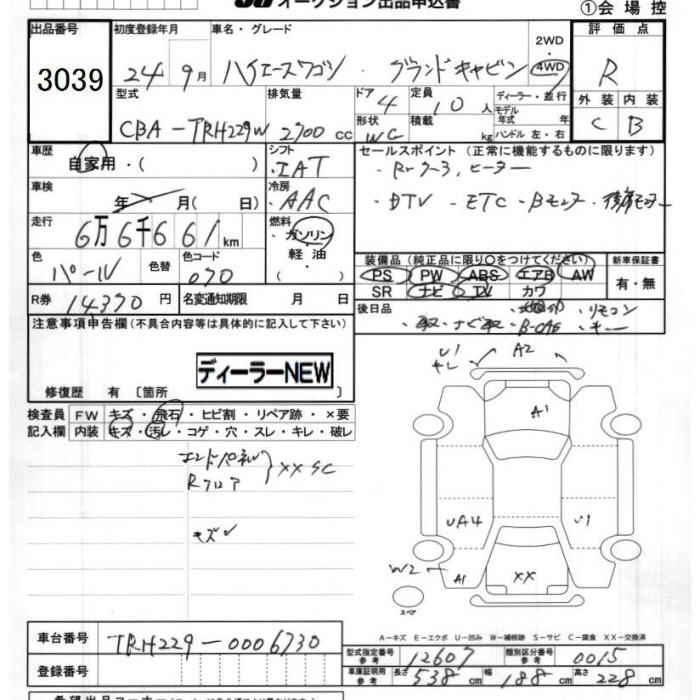 オークション出品申込書
①会場控
出品番号
3039
初度登録年月
24 9月
車名・グレード
ハイエースワゴン・グランドキャビン
2WD
・
4WD
評価点
R
外装 内装
C B
型式
CBA-TRH229W
排気量
2700 cc
ドア
4
形状
WG
定員
10 人
積載
kg
ディーラー・並行
モデル
年式 年
ハンドル 左・右
車歴
自家用・( )
シフト
IAT
セールスポイント (正常に機能するものに限ります)
・Rrクーラ, ヒーター
・DTV - ETC - Bモニター・後席モニター
車検
年 月( 日)
冷房
AAC
走行
6万6千661km
燃料
・ガソリン
・軽油
・( )
色
パール
色替
色コード
070
装備品(純正品に限り○をつけてください)
PS PW ABS エアB AW
SR ナビ TV カワ
新車保証書
有・無
R券 14370 円
名変通知期限 月 日
後日品
・リモコン
・キー
注意事項申告欄(不具合内容等は具体的に記入して下さい)
ディーラーNEW
修復歴 有 [箇所
検査員
記入欄
FW キズ・飛石・ヒビ割・リペア跡・×要
内装 キズ・汚レ・コゲ・穴・スレ・キレ・破レ
エンドパネル
Rフロア
XX SC
キズ
U1
キレ
A2
A1
UA4
U1
W2
A1
XX
スペア
A-キズ E-エクボ U-凹み W-補修跡 S-サビ C-腐食 XX-交換済
車台番号
TRH229-0006730
登録番号
型式指定番号
参考
12607
類別区分番号
参考
0015
車庫証明用
参考
長さ 538 cm
幅 188 cm
高さ 228 cm